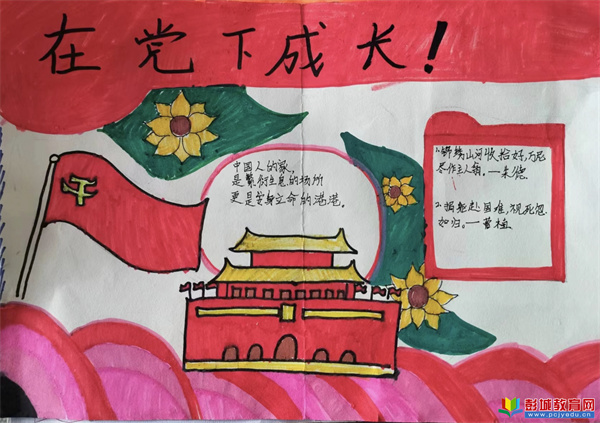 在党下成长!
中国人的家,
是繁衍生息的场所
更是安身立命的港湾。
1.锦绣山河收拾好,万民
尽作主人翁。一朱德
2.捐躯赴国难,视死忽
如归。一曹植
彭城教育网
www.pcjyedu.cn